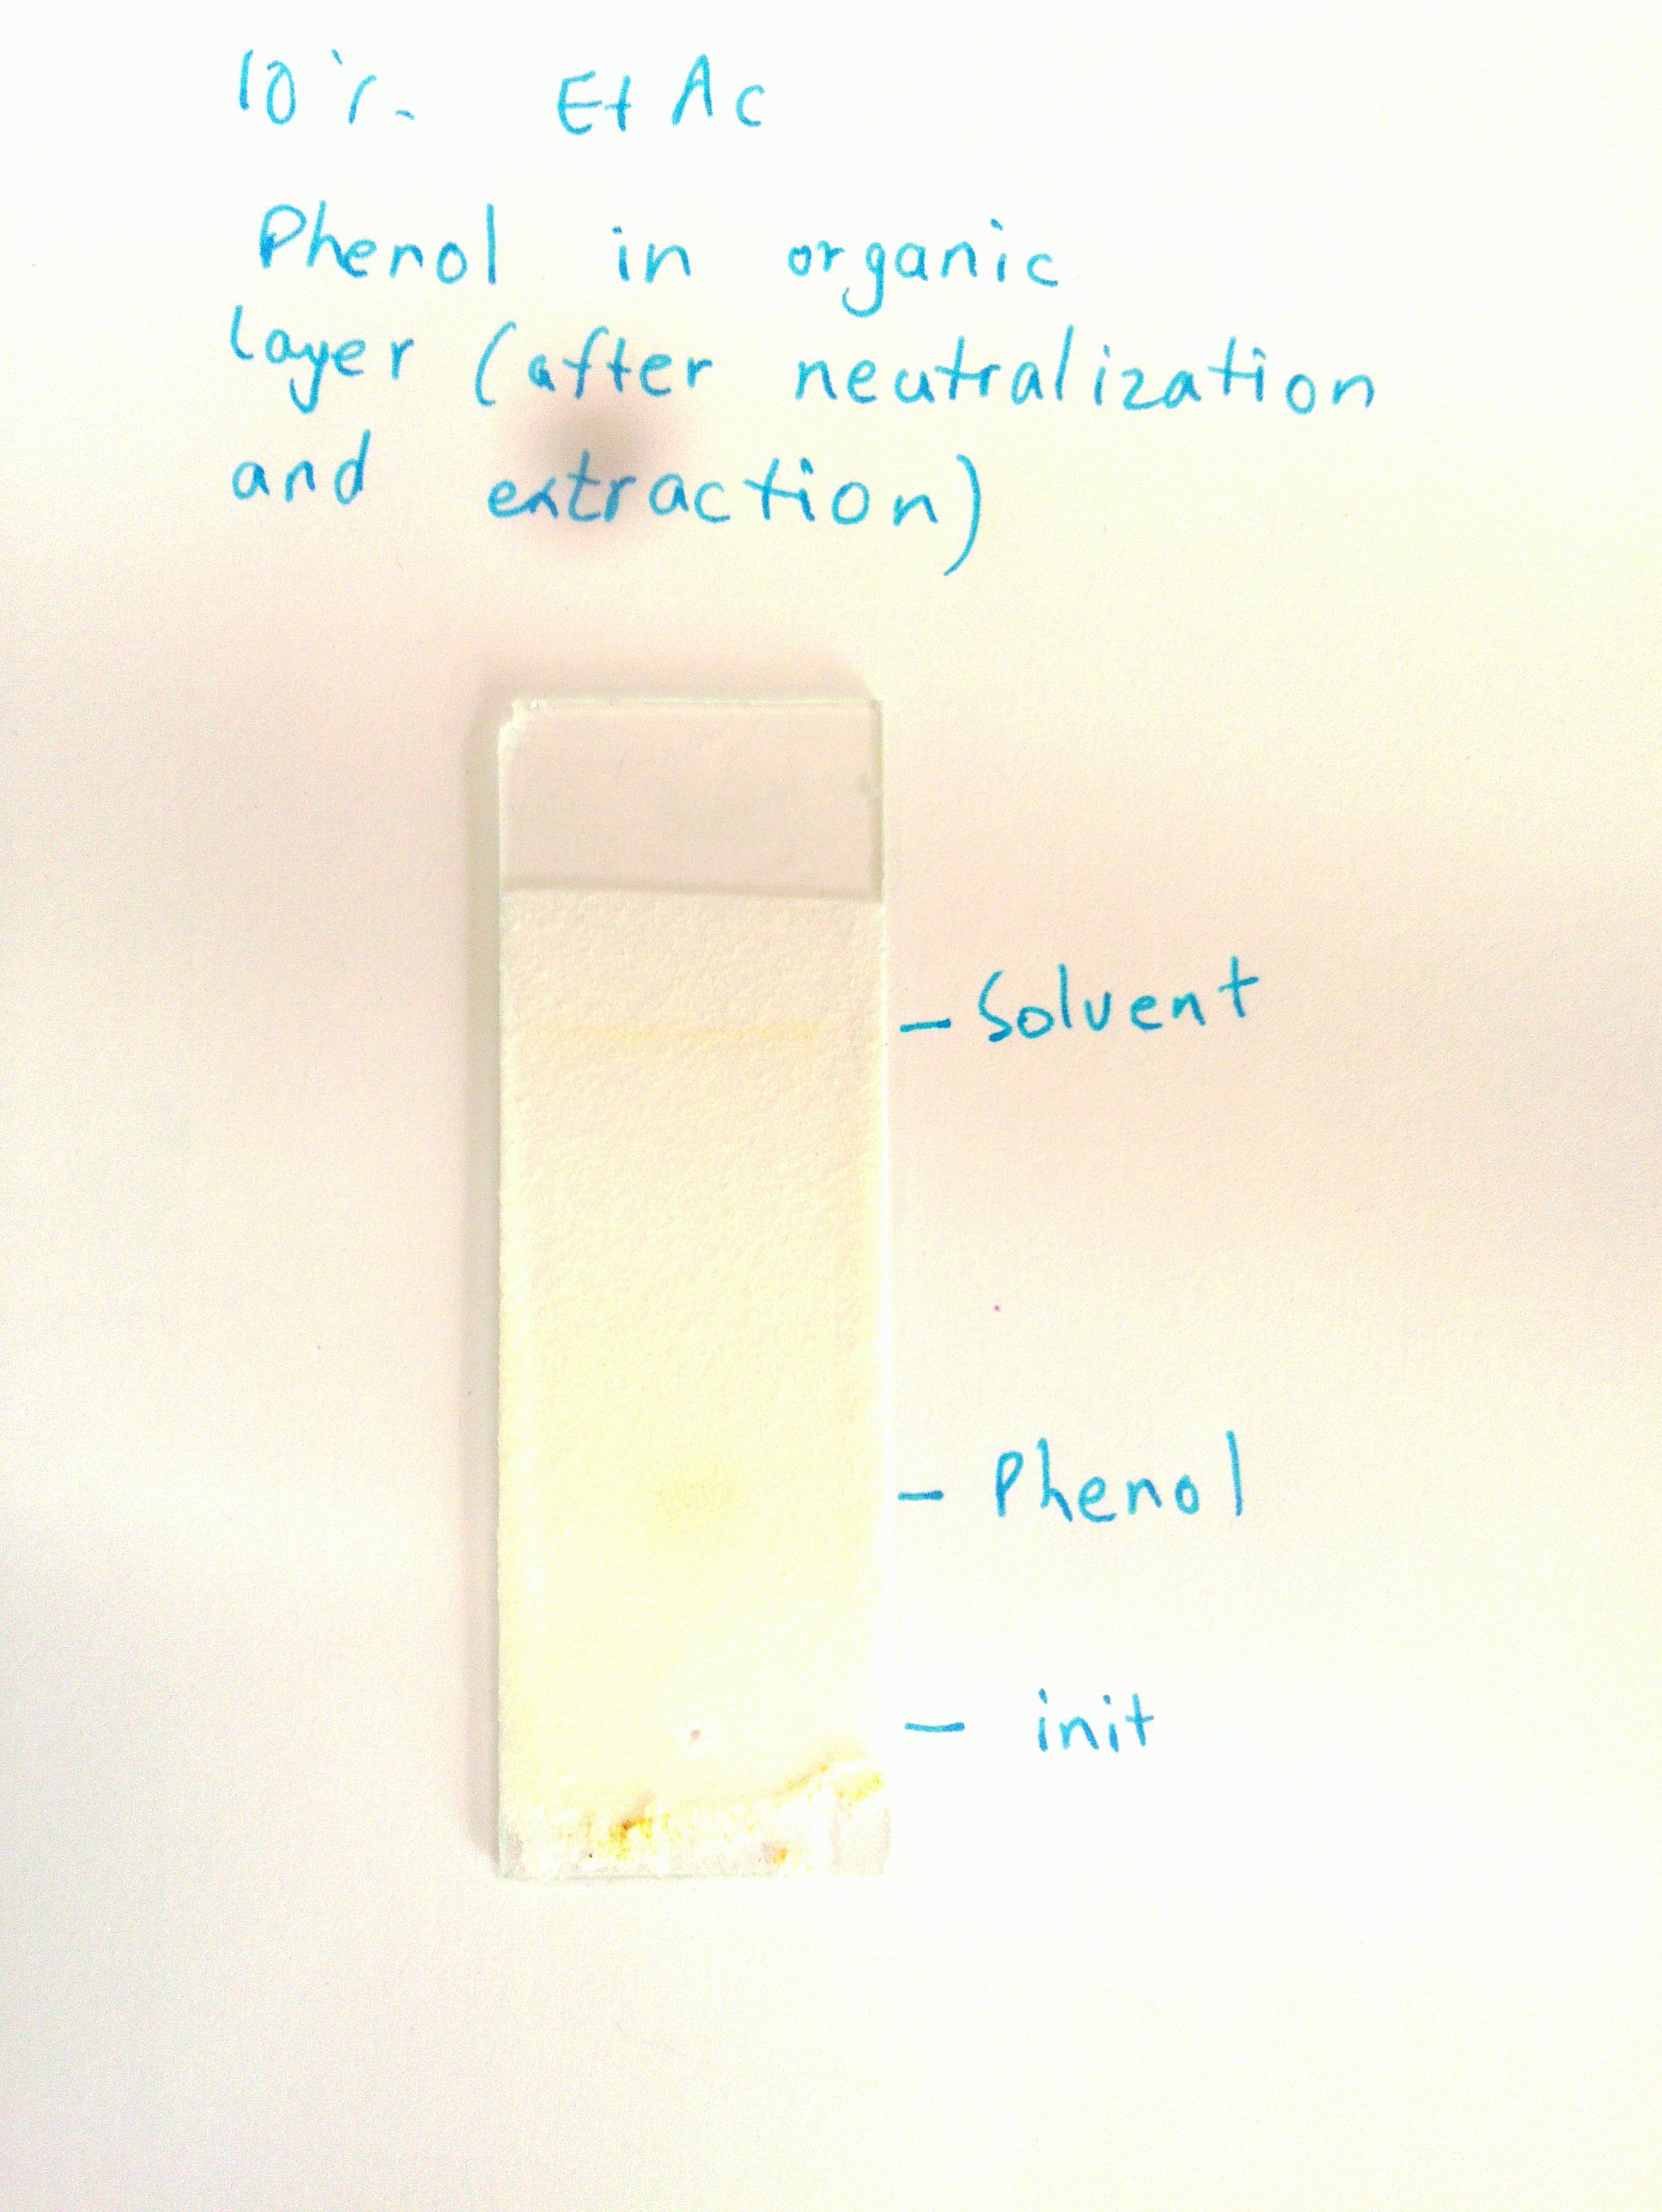 10% EtAc
Phenol in organic
layer (after neutralization
and extraction)
- Solvent
- Phenol
- init